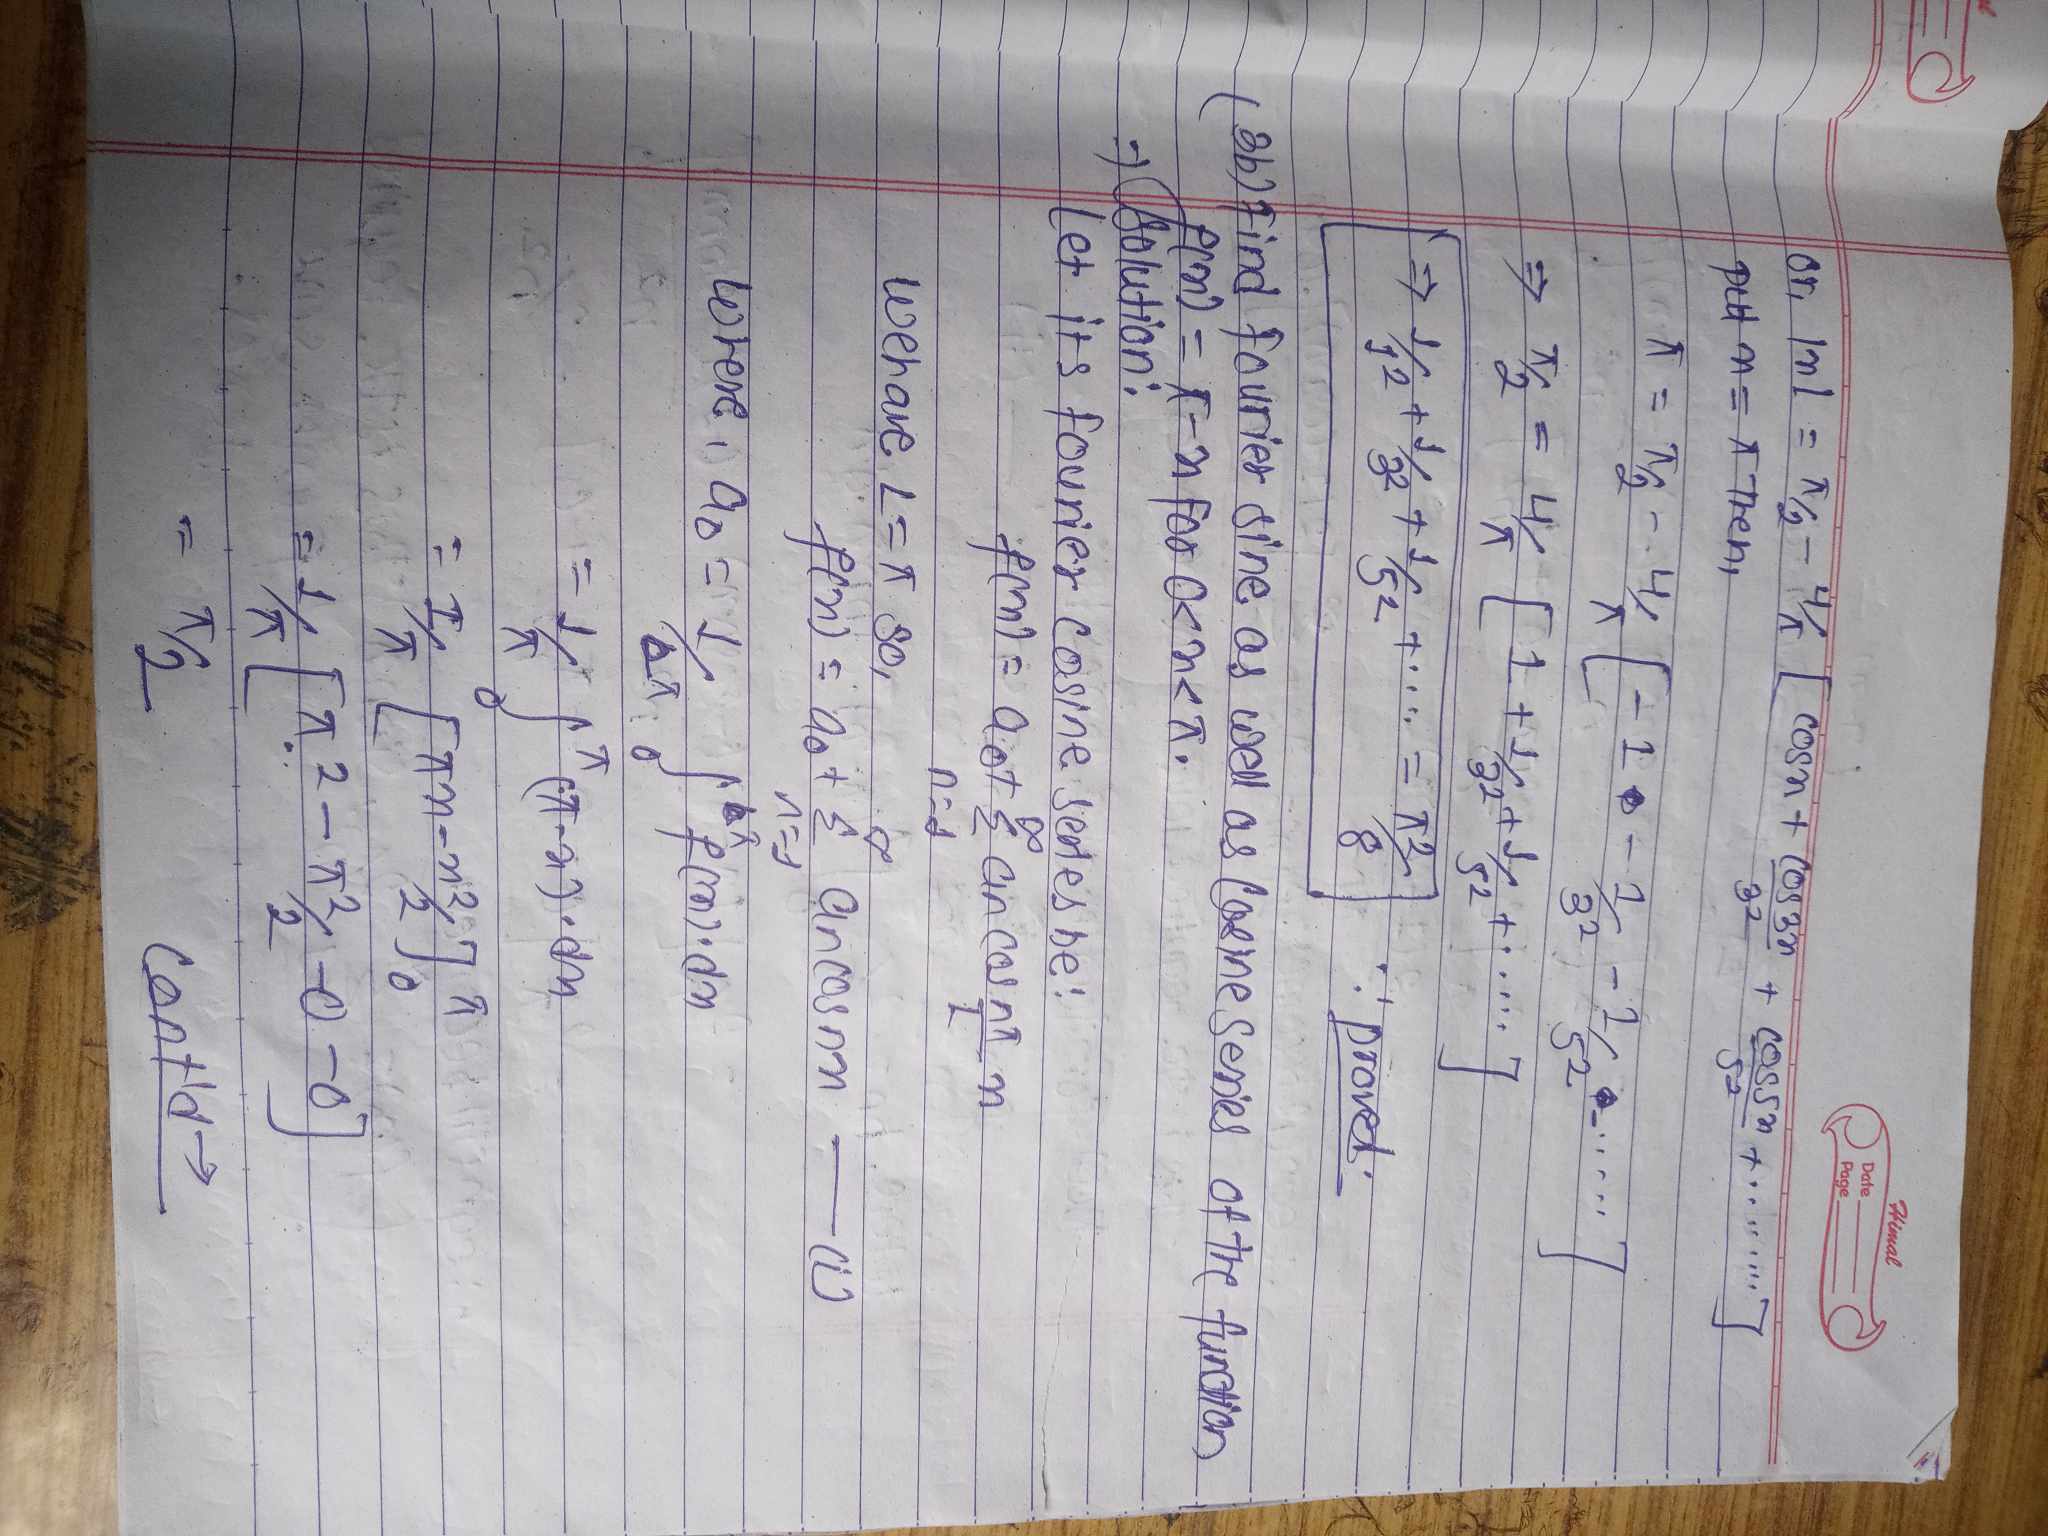 Himal
Date
Page
or, |x| = π/2 - 4/π [cosx + cos3x/3² + cos5x/5² + ........]
put x = π then,
π = π/2 - 4/π [-1 - 1/3² - 1/5² - .....]
⇒ π/2 = 4/π [1 + 1/3² + 1/5² + .....]
⇒ 1/1² + 1/3² + 1/5² + .... = π²/8 ∴ proved.
(3b) Find fourier sine as well as Cosine Series of the function
f(x) = π - x for 0 < x < π.
⇒ Solution:
Let its fourier cosine series be:
f(x) = a₀ + ∞Σn=1 an cos nπ/L x
we have L = π so,
f(x) = a₀ + ∞Σn=1 an cosnx —— (i)
where, a₀ = 1/π ₀∫π f(x).dx
= 1/π ₀∫π (π-x).dx
= 1/π [πx - x²/2]π₀
= 1/π [π² - π²/2 - 0 - 0]
= π/2
Cont'd →